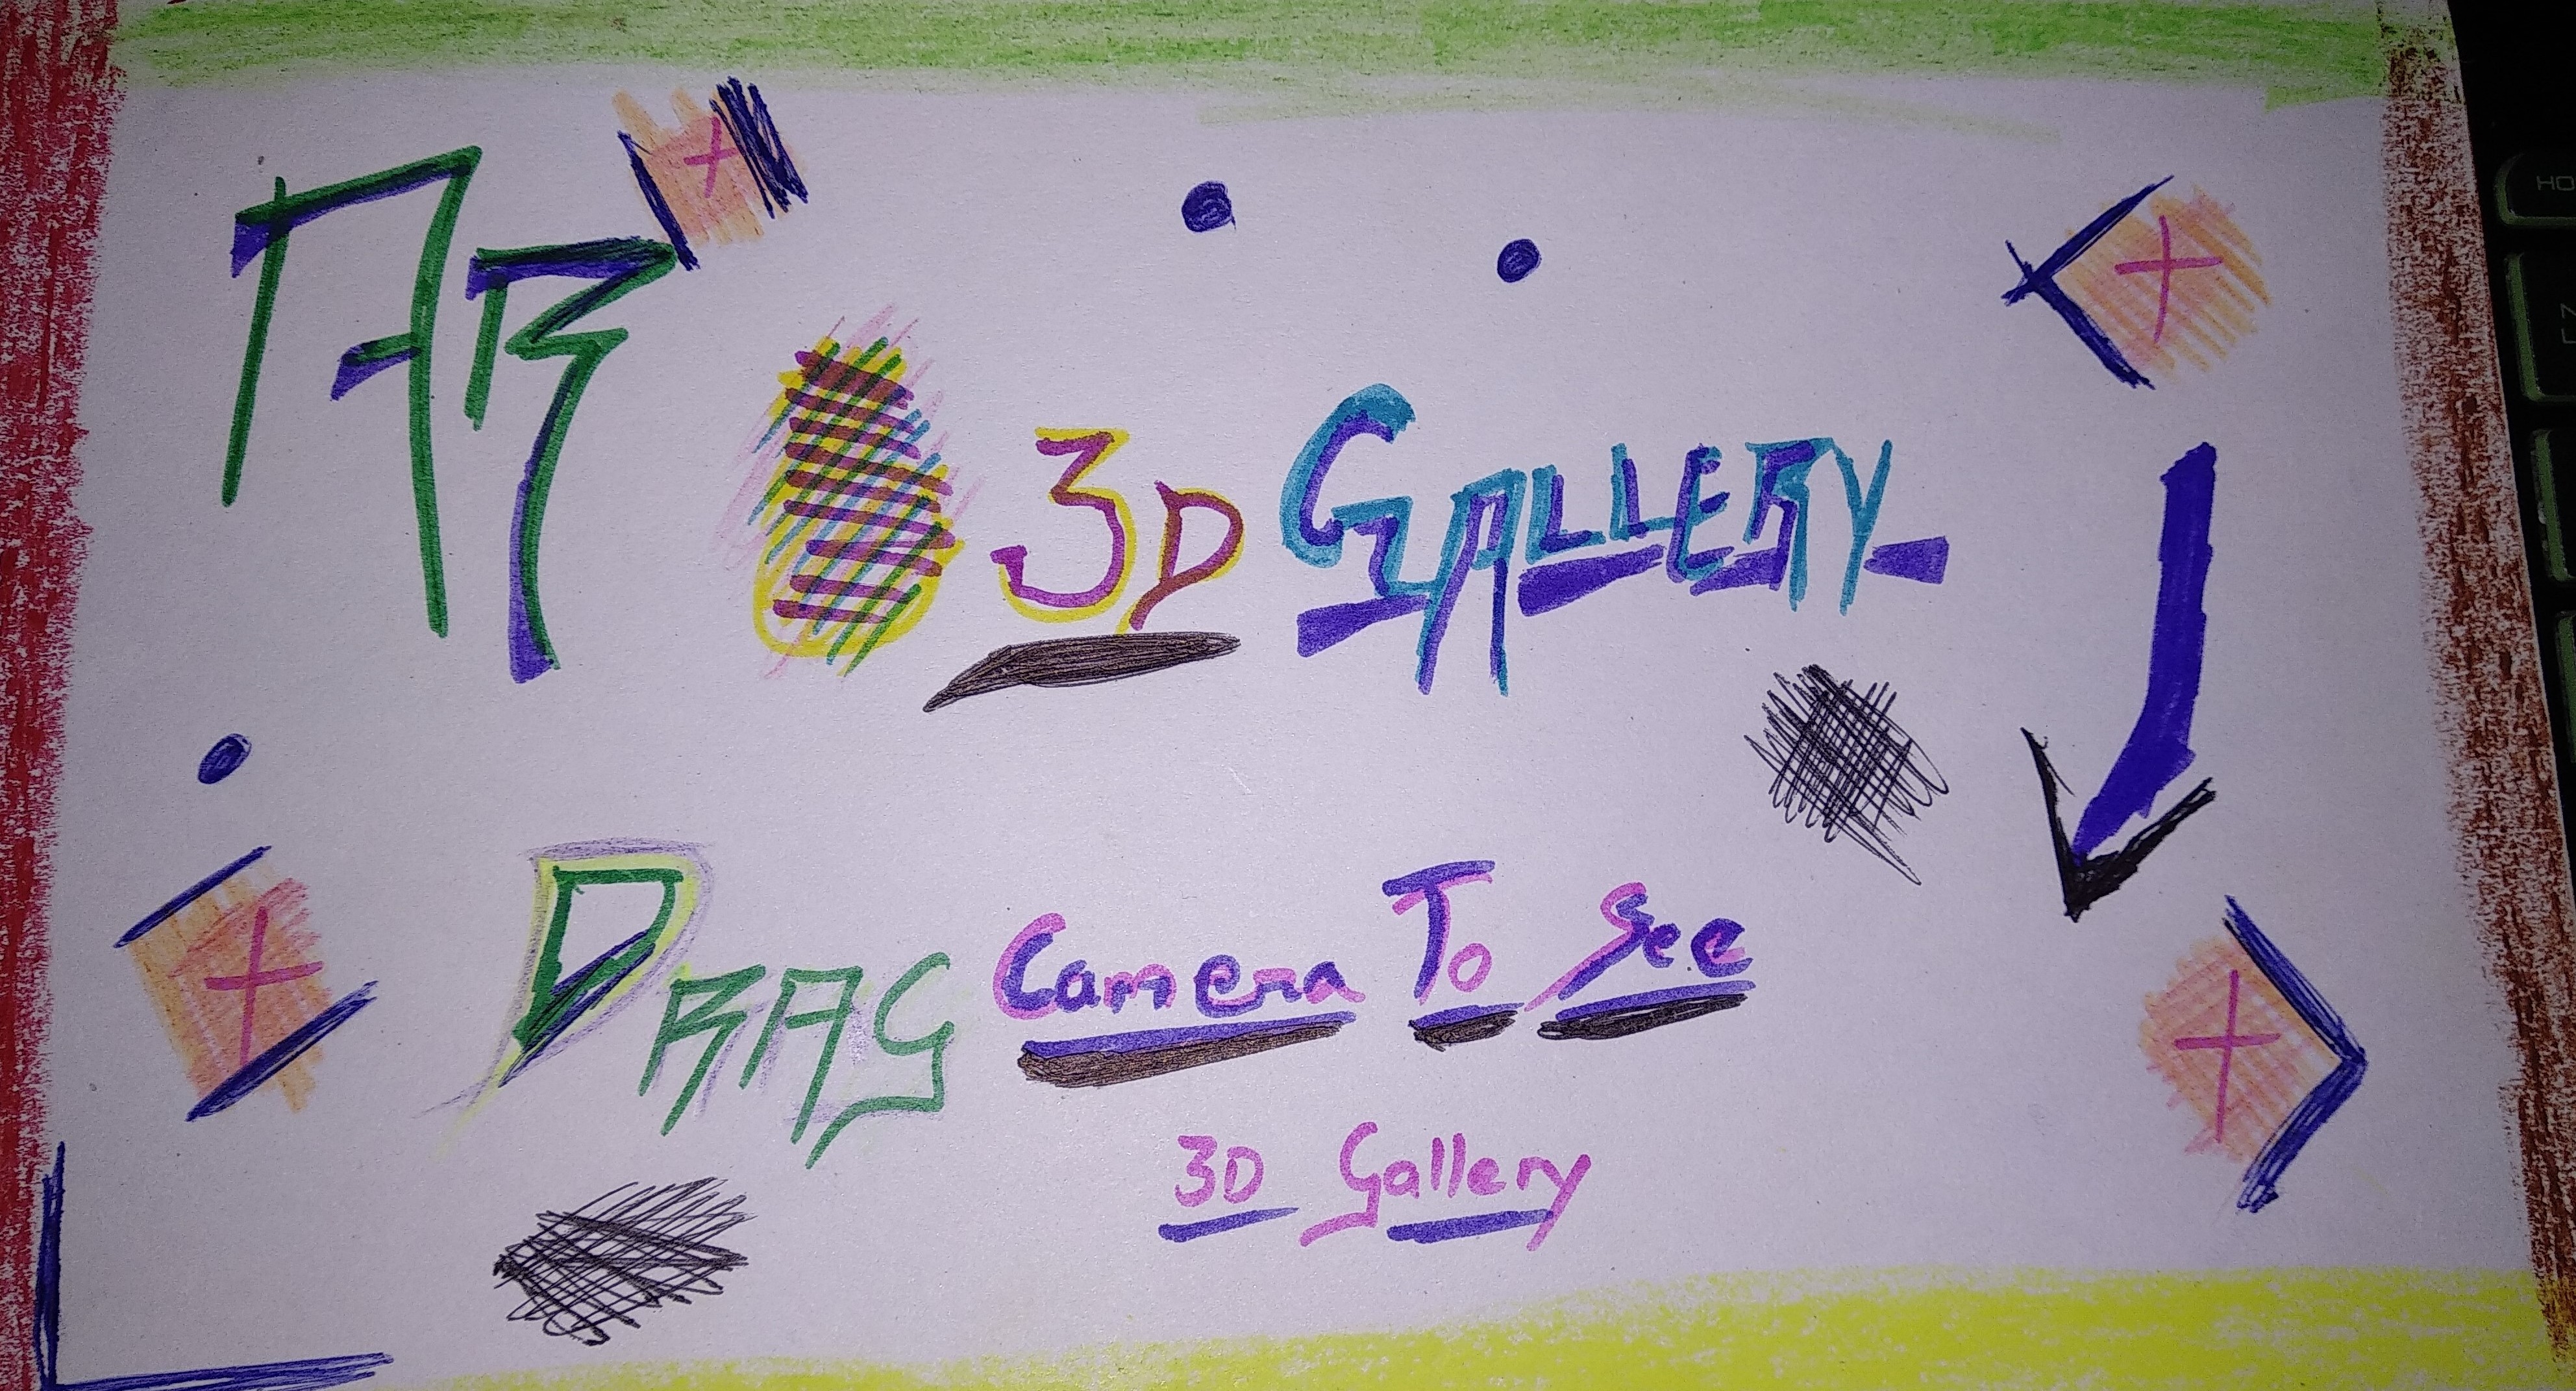 AR
3D GALLERY
DRAG Camera To See
3D Gallery
HO